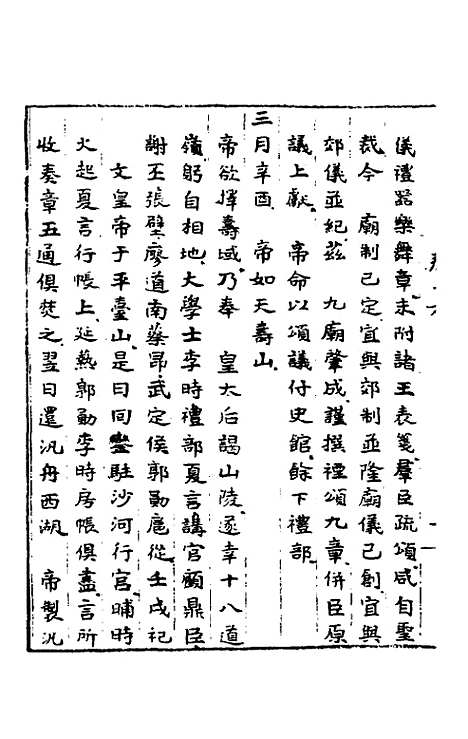 儀禮器樂舞章末附諸王表箋羣臣疏頌咸自聖
裁今　廟制已定宜與郊制並隆廟儀已創宜與
郊儀並紀茲　九廟肇成謹撰禋頌九章併臣原
議上獻　帝命以頌議付史館餘下禮部
三月辛酉　帝如天壽山
帝欲擇壽域乃奉　皇太后謁山陵遂幸十八道
嶺躬自相地大學士李時禮部夏言講官顧鼎臣
謝丕張璧廖道南蔡昂武定侯郭勛扈從壬戌祀
文皇帝于平臺山是日回鑾駐沙河行宮晡時
火起夏言行帳上延爇郭勛李時房帳俱盡言所
收奏章五通俱焚之翌日還汎舟西湖　帝製汎